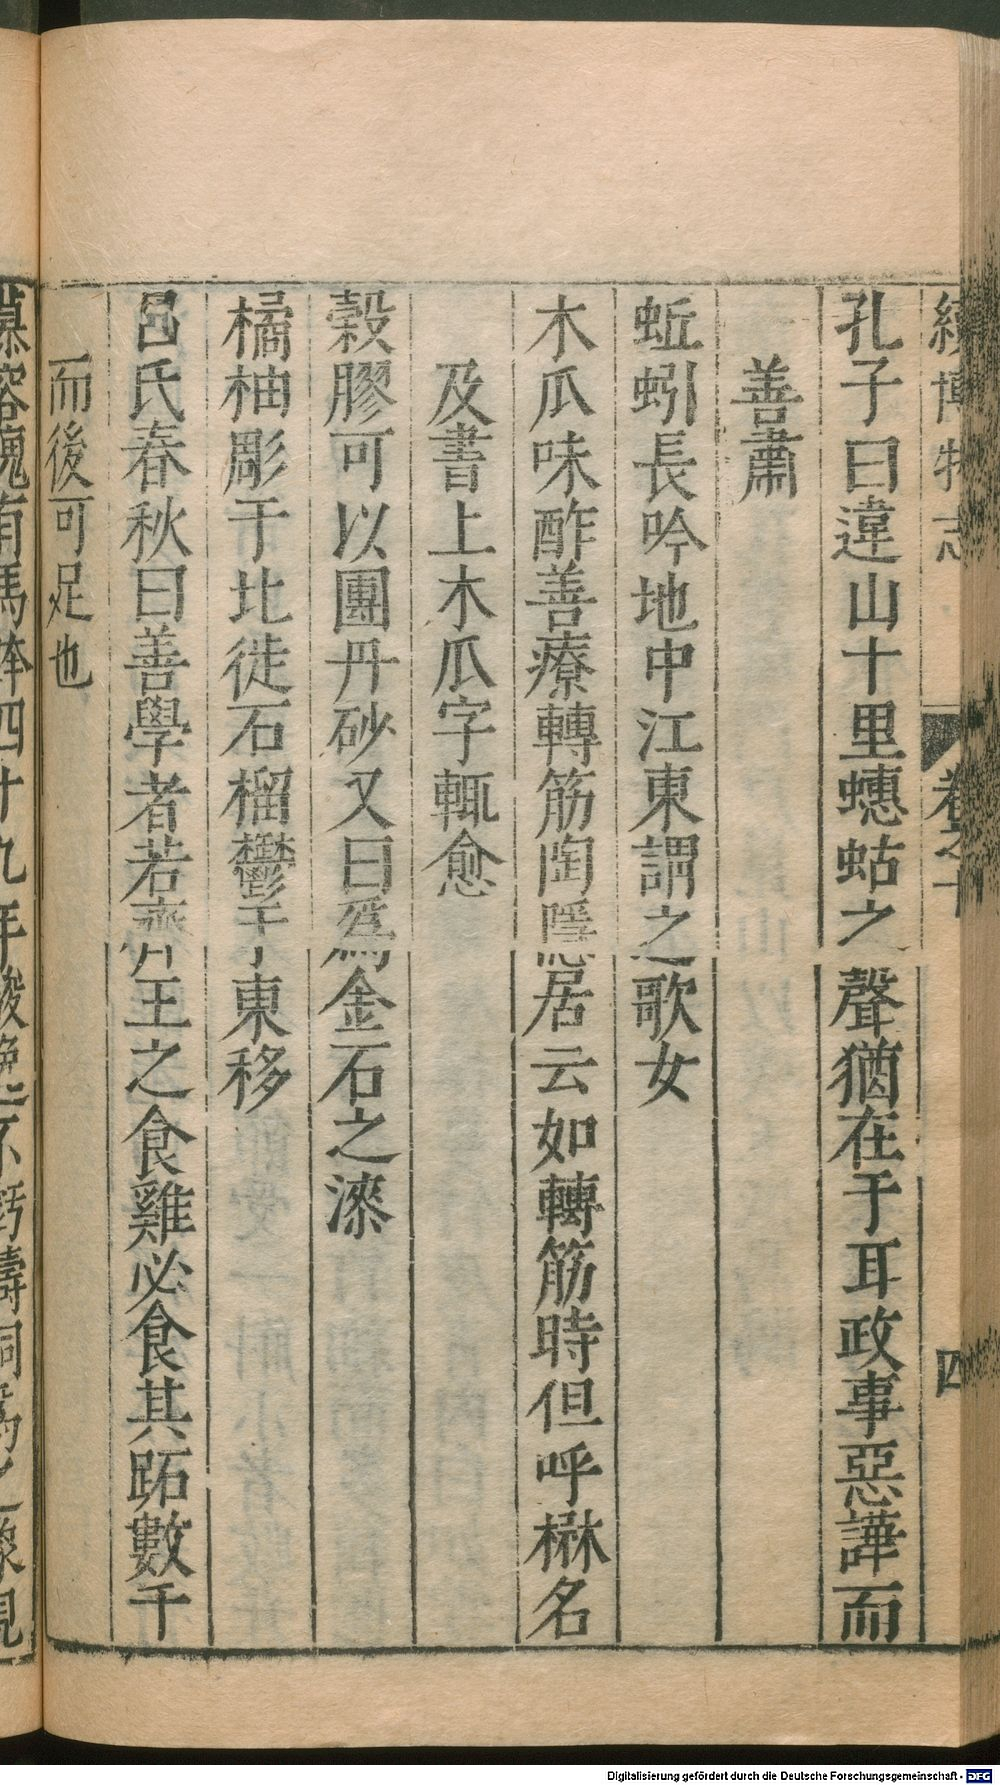 續博物志 卷之十 四
孔子曰違山十里蟪蛄之聲猶在于耳政事惡譁而
善肅
蚯蚓長吟地中江東謂之歌女
木瓜味酢善療轉筋陶隱居云如轉筋時但呼楙名
及書上木瓜字輒愈
穀膠可以團丹砂又曰爲金石之漆
橘柚彫于北徙石榴鬱于東移
呂氏春秋曰善學者若齊王之食雞必食其跖數千
而後可足也
慕容廆有馬四十九年駿逸不虧儔
Digitalisierung gefördert durch die Deutsche Forschungsgemeinschaft - DFG